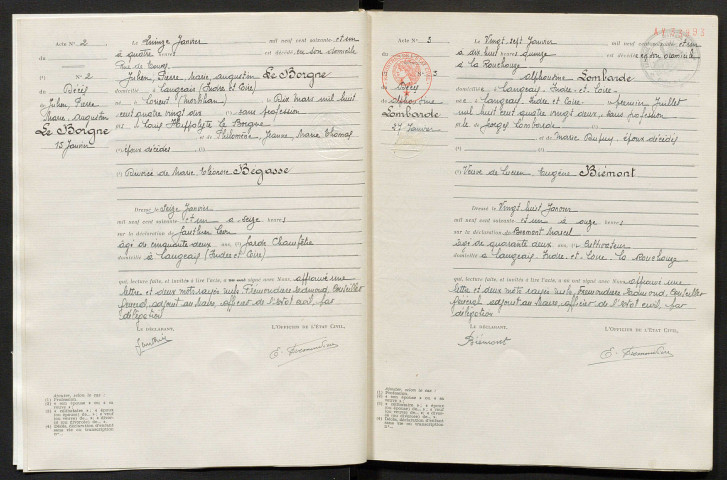 Acte N° 2
du
(1) N° 2
Décès
de Julien, Pierre
Marie, Augustin
Le Borgne
15 Janvier
Le Quinze Janvier mil neuf cent soixante et un
à quatre heures est décédé en son domicile
Rue de Tours
Julien, Pierre, Marie, Augustin Le Borgne
domicilié à Langeais (Indre et Loire)
né à Lorient (Morbihan) le Dix mars mil huit
cent quatre vingt dix (1) sans profession
fils de Louis Hippolyte Le Borgne
et de Philomène, Jeanne, Marie Thomas
(2) époux décédés
(3) Divorcé de Marie Eléonore Bégasse
Dressé le Seize Janvier
mil neuf cent soixante et un à seize heures
sur la déclaration de
Gauthier Léon
âgé de cinquante deux ans, (1) Garde Champêtre
domicilié à Langeais (Indre et Loire)
qui, lecture faite, et invité à lire l'acte, a signé avec Nous, approuvé une
lettre et deux mots rayés nuls, Fremondière Edmond, Conseiller
Général, adjoint au Maire, officier de l'état civil, par
délégation
LE DÉCLARANT, L'OFFICIER DE L'ÉTAT CIVIL,
Gauthier
E. Fremondière
Ajouter, selon le cas :
(1) Profession
Acte N° 3
Décès
de Alphonsine
Lombarde
27 Janvier
Le Vingt sept Janvier mil neuf cent soixante et un
à dix huit heures quinze est décédée en son domicile
à la Rouchouze
Alphonsine Lombarde
domiciliée à Langeais, Indre et Loire
née à Langeais, Indre et Loire le premier Juillet
mil huit cent quatre vingt deux, sans profession
fille de Georges Lombarde
et de Marie Dupuy, époux décédés
(3) Veuve de Lucien Eugène Biémont
Dressé le Vingt huit Janvier
mil neuf cent soixante et un à onze heures
sur la déclaration de Biemont Marcel
âgé de quarante deux ans, (1) Cultivateur
domicilié à Langeais, Indre et Loire, La Rouchouze
qui, lecture faite, et invité à lire l'acte, a signé avec Nous, approuvé une
lettre et deux mots rayés nuls, Fremondière Edmond, Conseiller
Général, adjoint au Maire, officier de l'état civil, par
délégation
LE DÉCLARANT, L'OFFICIER DE L'ÉTAT CIVIL,
Biémont
E. Fremondière
Ajouter, selon le cas :
(1) Profession